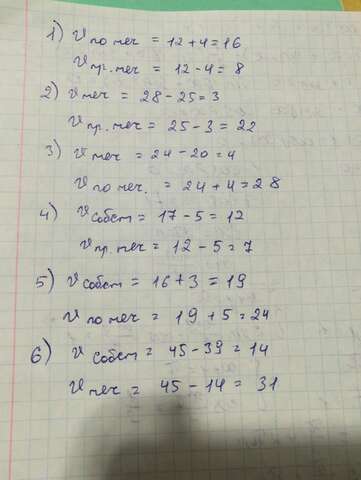 1) V по теч = 12 + 4 = 16
V пр. теч = 12 - 4 = 8
2) V теч = 28 - 25 = 3
V пр. теч = 25 - 3 = 22
3) V теч = 24 - 20 = 4
V по теч. = 24 + 4 = 28
4) V собст = 17 - 5 = 12
V пр. теч = 12 - 5 = 7
5) V собст = 16 + 3 = 19
V по теч = 19 + 5 = 24
6) V собст = 45 - 39 = 14
V теч = 45 - 14 = 31